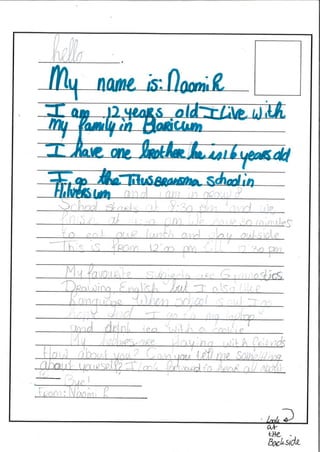 hello
My name is: Naomi R
I am 12 years old I Live with
my family in Blaricum
I have one brother he is 16 years old
I go the Titus BRANSMA School in
Hilversum and I am in group 8
School starts at 8:30 pm and we
finish at pm we have 30 minutes
to eat our lunch and play outside
This is from 12:00 pm till 12.30 pm
My favourite subjects are Gymnastics
Drawing English but I also like
Language When school is out I go
home and I go to my laptop
and drink tea with a cookie
My hobbies are Playing with A friends
How about you? Can you tell me something
about yourself? I look forward to hear
Bye!
From: Naomi R
Look
at
the
Backside